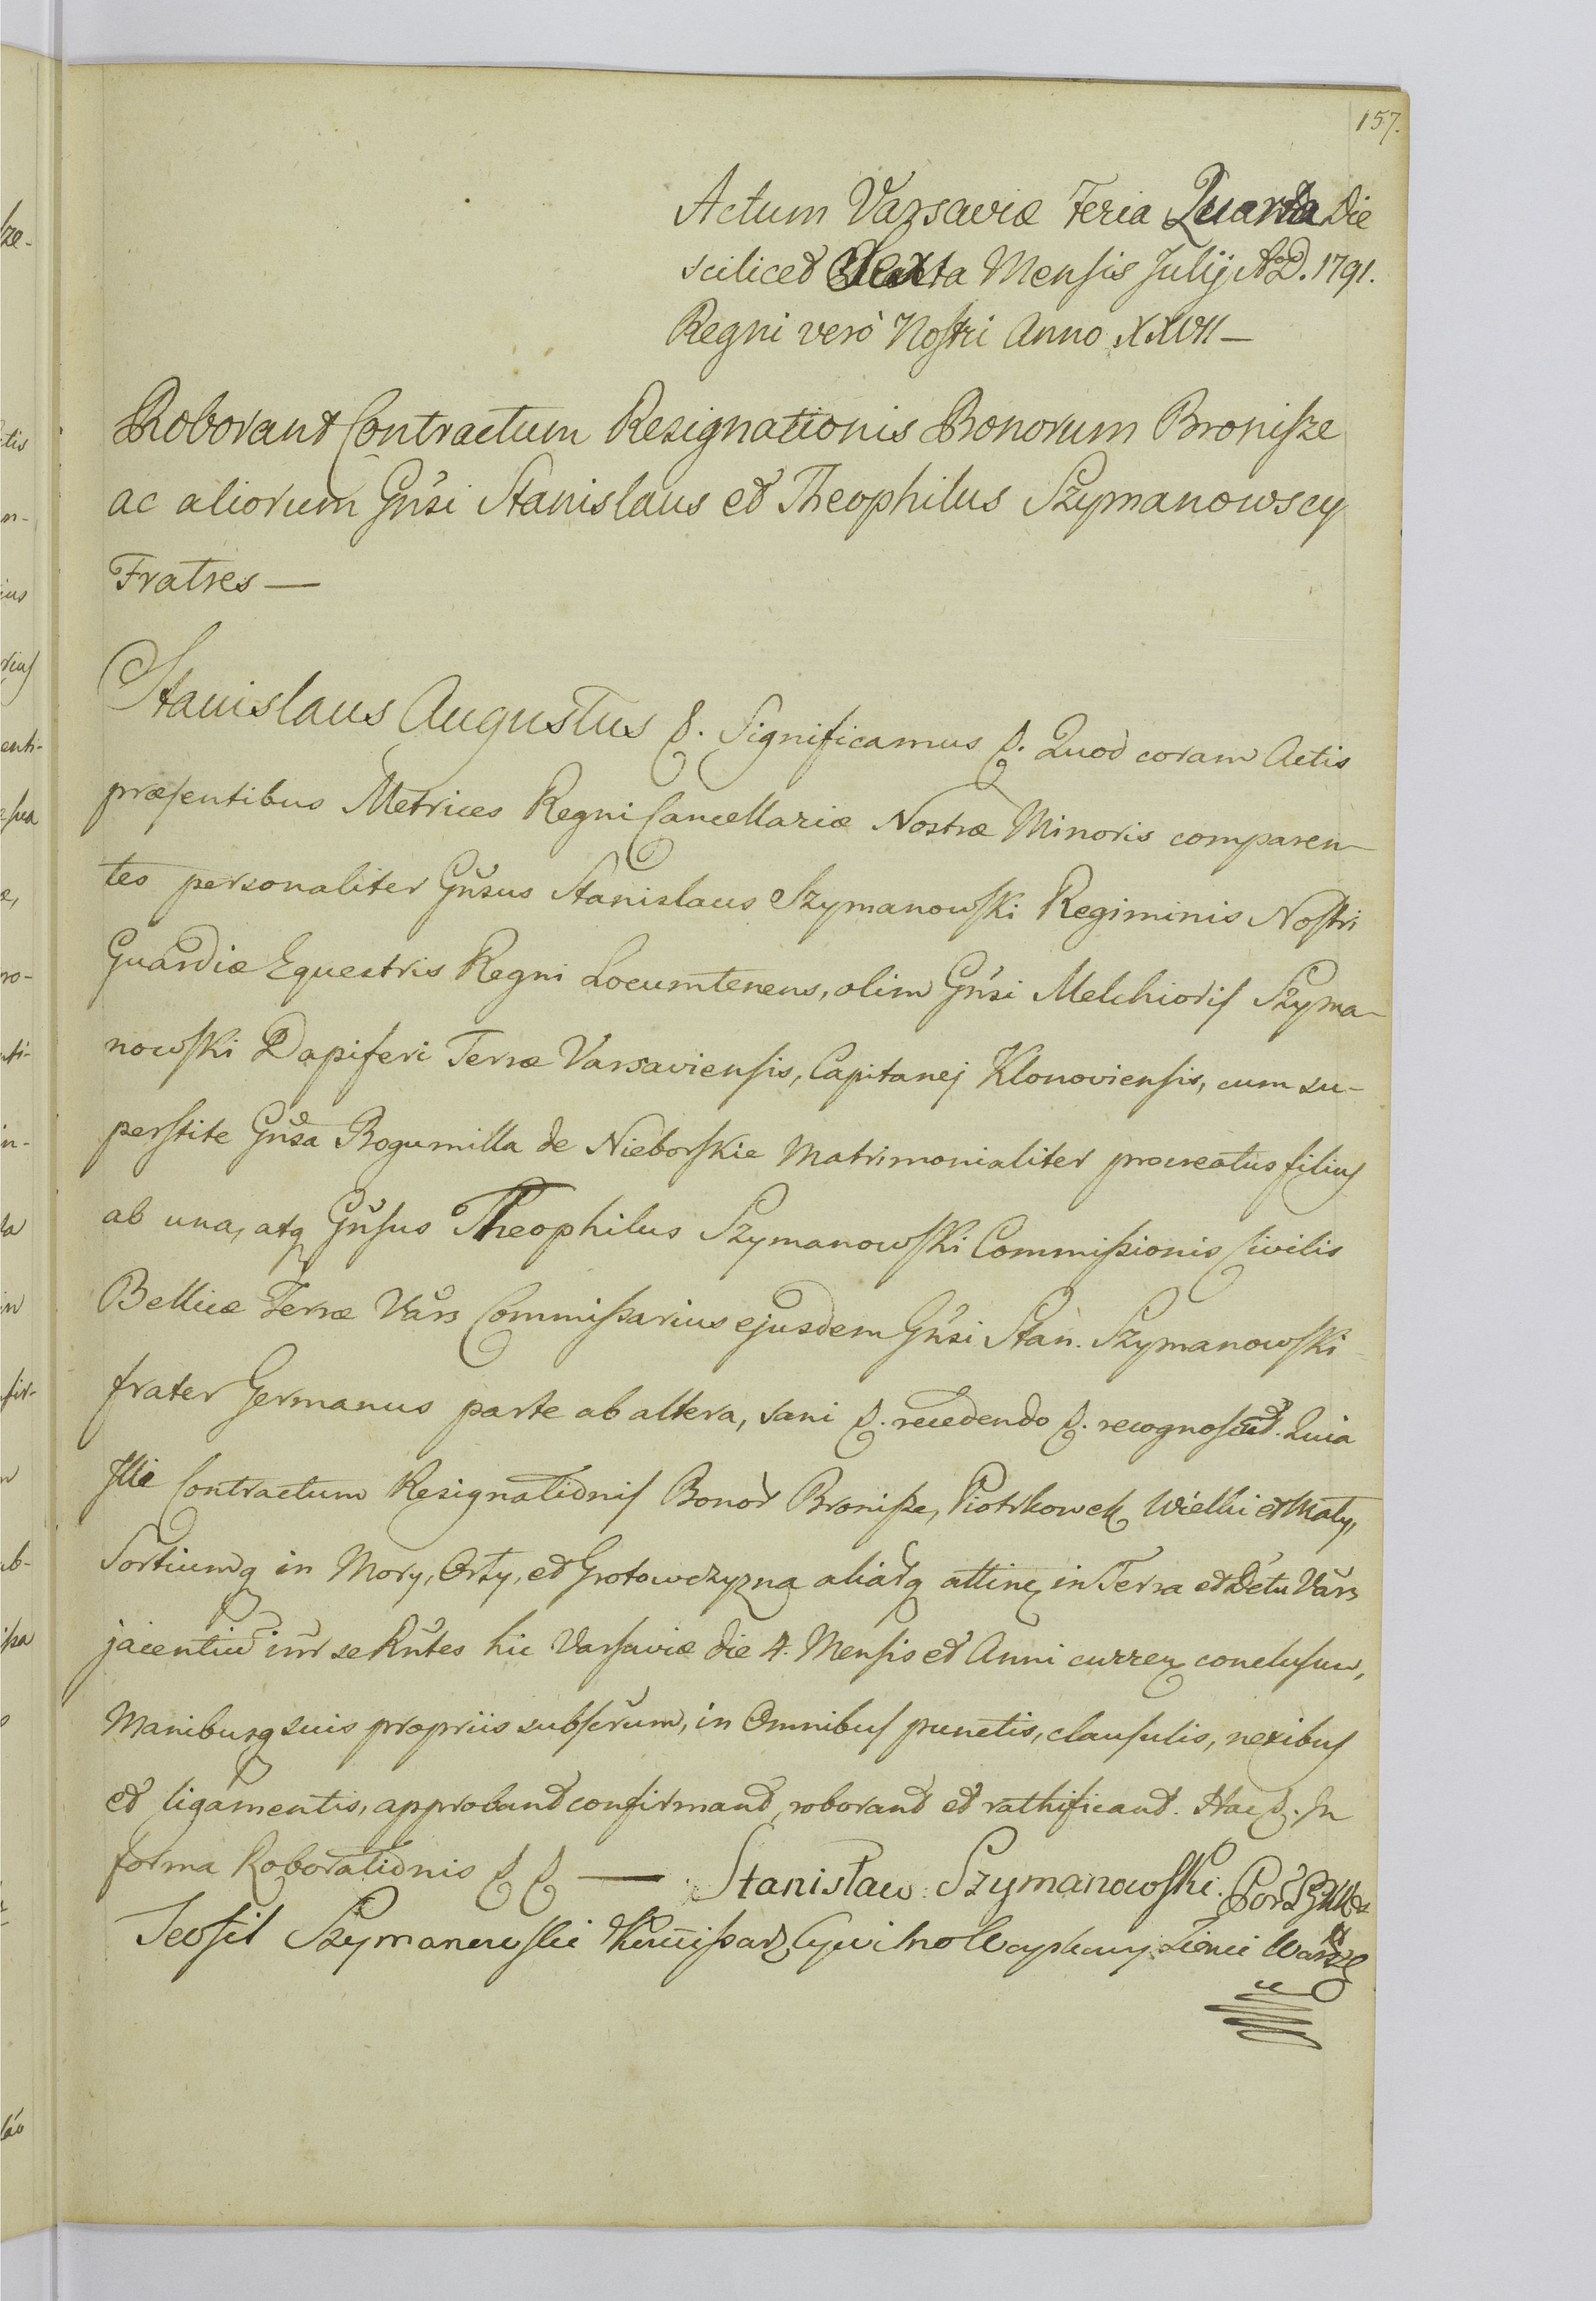 157.
Actum Varsaviæ Feria Quarta Die
scilicet Sexta Mensis Julij A.D. 1791.
Regni verò Nostri Anno XXVII—
Roborant Contractum Resignationis Bonorum Bronisze
ac aliorum Gnsi Stanislaus et Theophilus Szymanowscy
Fratres—
Stanislaus Augustus &. Significamus &. Quod coram Actis
præsentibus Metrices Regni Cancellariæ Nostræ Minoris comparen-
tes personaliter Gnsus Stanislaus Szymanowski Regiminis Nostri
Guardiæ Equestris Regni Locumtenens, olim Gnsi Melchioris Szyma-
nowski Dapiferi Terræ Varsaviensis, Capitanej Klonoviensis, cum su-
perstite Gnsa Bogumilla de Nieborskie Matrimonialiter procreatus filius
ab una, atq Gnsus Theophilus Szymanowski Commissionis Civilis
Bellicæ Terræ Vars Commissarius ejusdem Gnsi Stan. Szymanowski
frater Germanus parte ab altera, sani &. recedendo &. recognoscūt. Quia
Illi Contractum Resignationis Bonor Bronisze, Piotrkowek Wielki et Mały,
Sortiumq in Mory, Orty, et Grotowczyzna aliarq attinen in Terra et Dctu Vars
jacentiū intr se Rntes hic Varsaviæ die 4. Mensis et Anni curren conclusum,
Manibusq suis propriis subscrum, in Omnibus punctis, clausulis, nexibus
et ligamentis, approbant confirmant, roborant et rathificant. Hac &. In
forma Roborationis & & — Stanisław Szymanowski. Por
Teofil Szymanowski Kommissarz Cywilno Woyskowy Ziemi Warsz